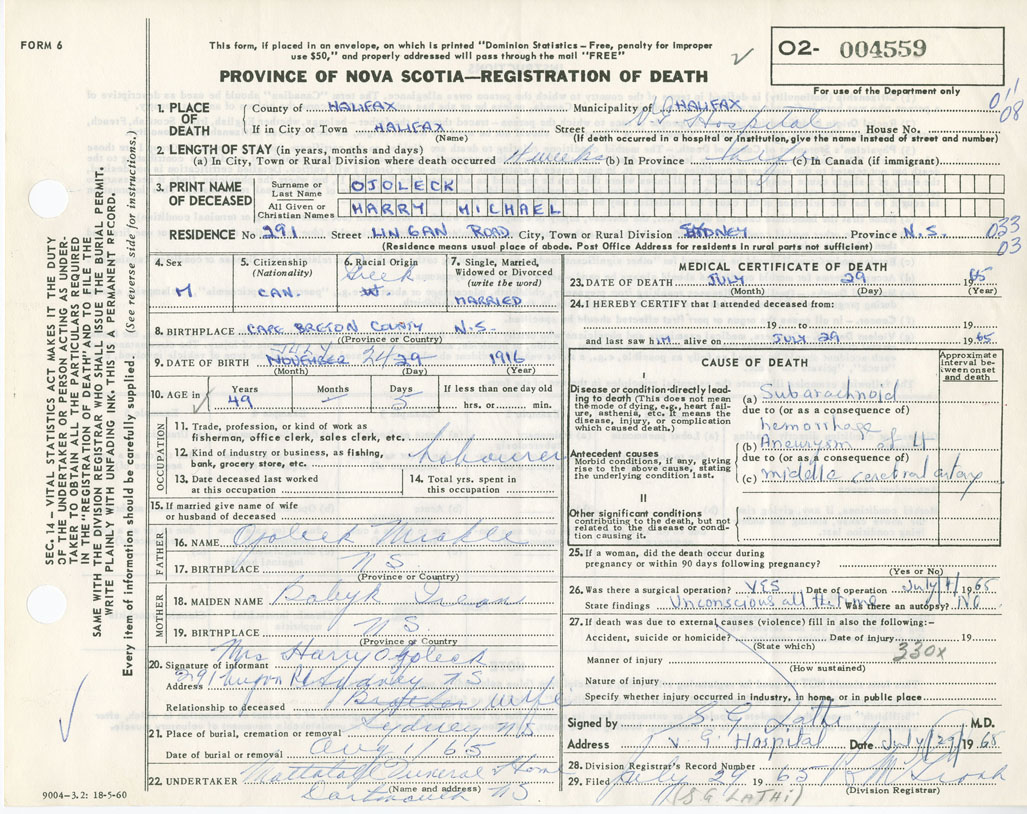 FORM 6
This form, if placed in an envelope, on which is printed "Dominion Statistics – Free, penalty for improper
use $50," and properly addressed will pass through the mail "FREE"
02- 004559
PROVINCE OF NOVA SCOTIA—REGISTRATION OF DEATH
For use of the Department only
1. PLACE OF DEATH
County of HALIFAX Municipality of HALIFAX
If in City or Town HALIFAX Street V.G. Hospital House No.
(Name) (If death occurred in a hospital or institution, give the name instead of street and number)
2. LENGTH OF STAY (in years, months and days)
(a) In City, Town or Rural Division where death occurred 4 weeks (b) In Province life (c) In Canada (if immigrant)
3. PRINT NAME OF DECEASED
Surname or Last Name OJOLECK
All Given or Christian Names HARRY MICHAEL
RESIDENCE No. 291 Street LINGAN ROAD City, Town or Rural Division SYDNEY Province N.S. 033
03
(Residence means usual place of abode. Post Office Address for residents in rural parts not sufficient)
4. Sex
M
5. Citizenship
(Nationality)
CAN.
6. Racial Origin
W.
7. Single, Married,
Widowed or Divorced
(write the word)
MARRIED
8. BIRTHPLACE CAPE BRETON COUNTY N.S.
(Province or Country)
9. DATE OF BIRTH JULY NOVEMBER 24 29 1916
(Month) (Day) (Year)
10. AGE in
Years 49
Months –
Days 5
If less than one day old
hrs. or min.
OCCUPATION
11. Trade, profession, or kind of work as
fisherman, office clerk, sales clerk, etc.
12. Kind of industry or business, as fishing,
bank, grocery store, etc.
Labourer
13. Date deceased last worked
at this occupation
14. Total yrs. spent in
this occupation
15. If married give name of wife
or husband of deceased
FATHER
16. NAME Ojoleck
17. BIRTHPLACE NS
(Province or Country)
MOTHER
18. MAIDEN NAME Babyk
19. BIRTHPLACE NS
(Province or Country)
20. Signature of informant Mrs Harry Ojoleck
Address 291 Lingan Rd Sydney NS
Relationship to deceased Brother wife
21. Place of burial, cremation or removal Sydney NS
Date of burial or removal Aug 1/65
22. UNDERTAKER Mattatall Funeral Home
(Name and address)
Dartmouth NS
9004–3.2: 18-5-60
SEC. 14 – VITAL STATISTICS ACT MAKES IT THE DUTY
OF THE UNDERTAKER OR PERSON ACTING AS UNDER-
TAKER TO OBTAIN ALL THE PARTICULARS REQUIRED
IN THE "REGISTRATION OF DEATH" AND TO FILE THE
SAME WITH THE DIVISION REGISTRAR WHO SHALL ISSUE THE BURIAL PERMIT.
WRITE PLAINLY WITH UNFADING INK. THIS IS A PERMANENT RECORD.
Every item of information should be carefully supplied. (See reverse side for instructions.)
MEDICAL CERTIFICATE OF DEATH
23. DATE OF DEATH JULY 29 1965
(Month) (Day) (Year)
24. I HEREBY CERTIFY that I attended deceased from:
19 to 19
and last saw him alive on JULY 29 1965
CAUSE OF DEATH
Approximate
interval be-
tween onset
and death
I
Disease or condition directly lead-
ing to death (This does not mean
the mode of dying, e.g., heart fail-
ure, asthenia, etc. It means the
disease, injury, or complication
which caused death.)
(a) Subarachnoid
due to (or as a consequence of)
hemorrhage
Antecedent causes
Morbid conditions, if any, giving
rise to the above cause, stating
the underlying condition last.
(b) Aneurysm of L
due to (or as a consequence of)
(c) middle cerebral artery
II
Other significant conditions
contributing to the death, but not
related to the disease or condi-
tion causing it.
25. If a woman, did the death occur during
pregnancy or within 90 days following pregnancy?
(Yes or No)
26. Was there a surgical operation? YES Date of operation July 1965
State findings Unconscious all the time Was there an autopsy? No
27. If death was due to external causes (violence) fill in also the following:-
Accident, suicide or homicide? Date of injury 19
(State which) 330x
Manner of injury
(How sustained)
Nature of injury
Specify whether injury occurred in industry, in home, or in public place
Signed by S. G. Lathi M.D.
Address V. G. Hospital Date July 29 1965
28. Division Registrar's Record Number
29. Filed July 29 1965
(Division Registrar)
(S G LATHI)